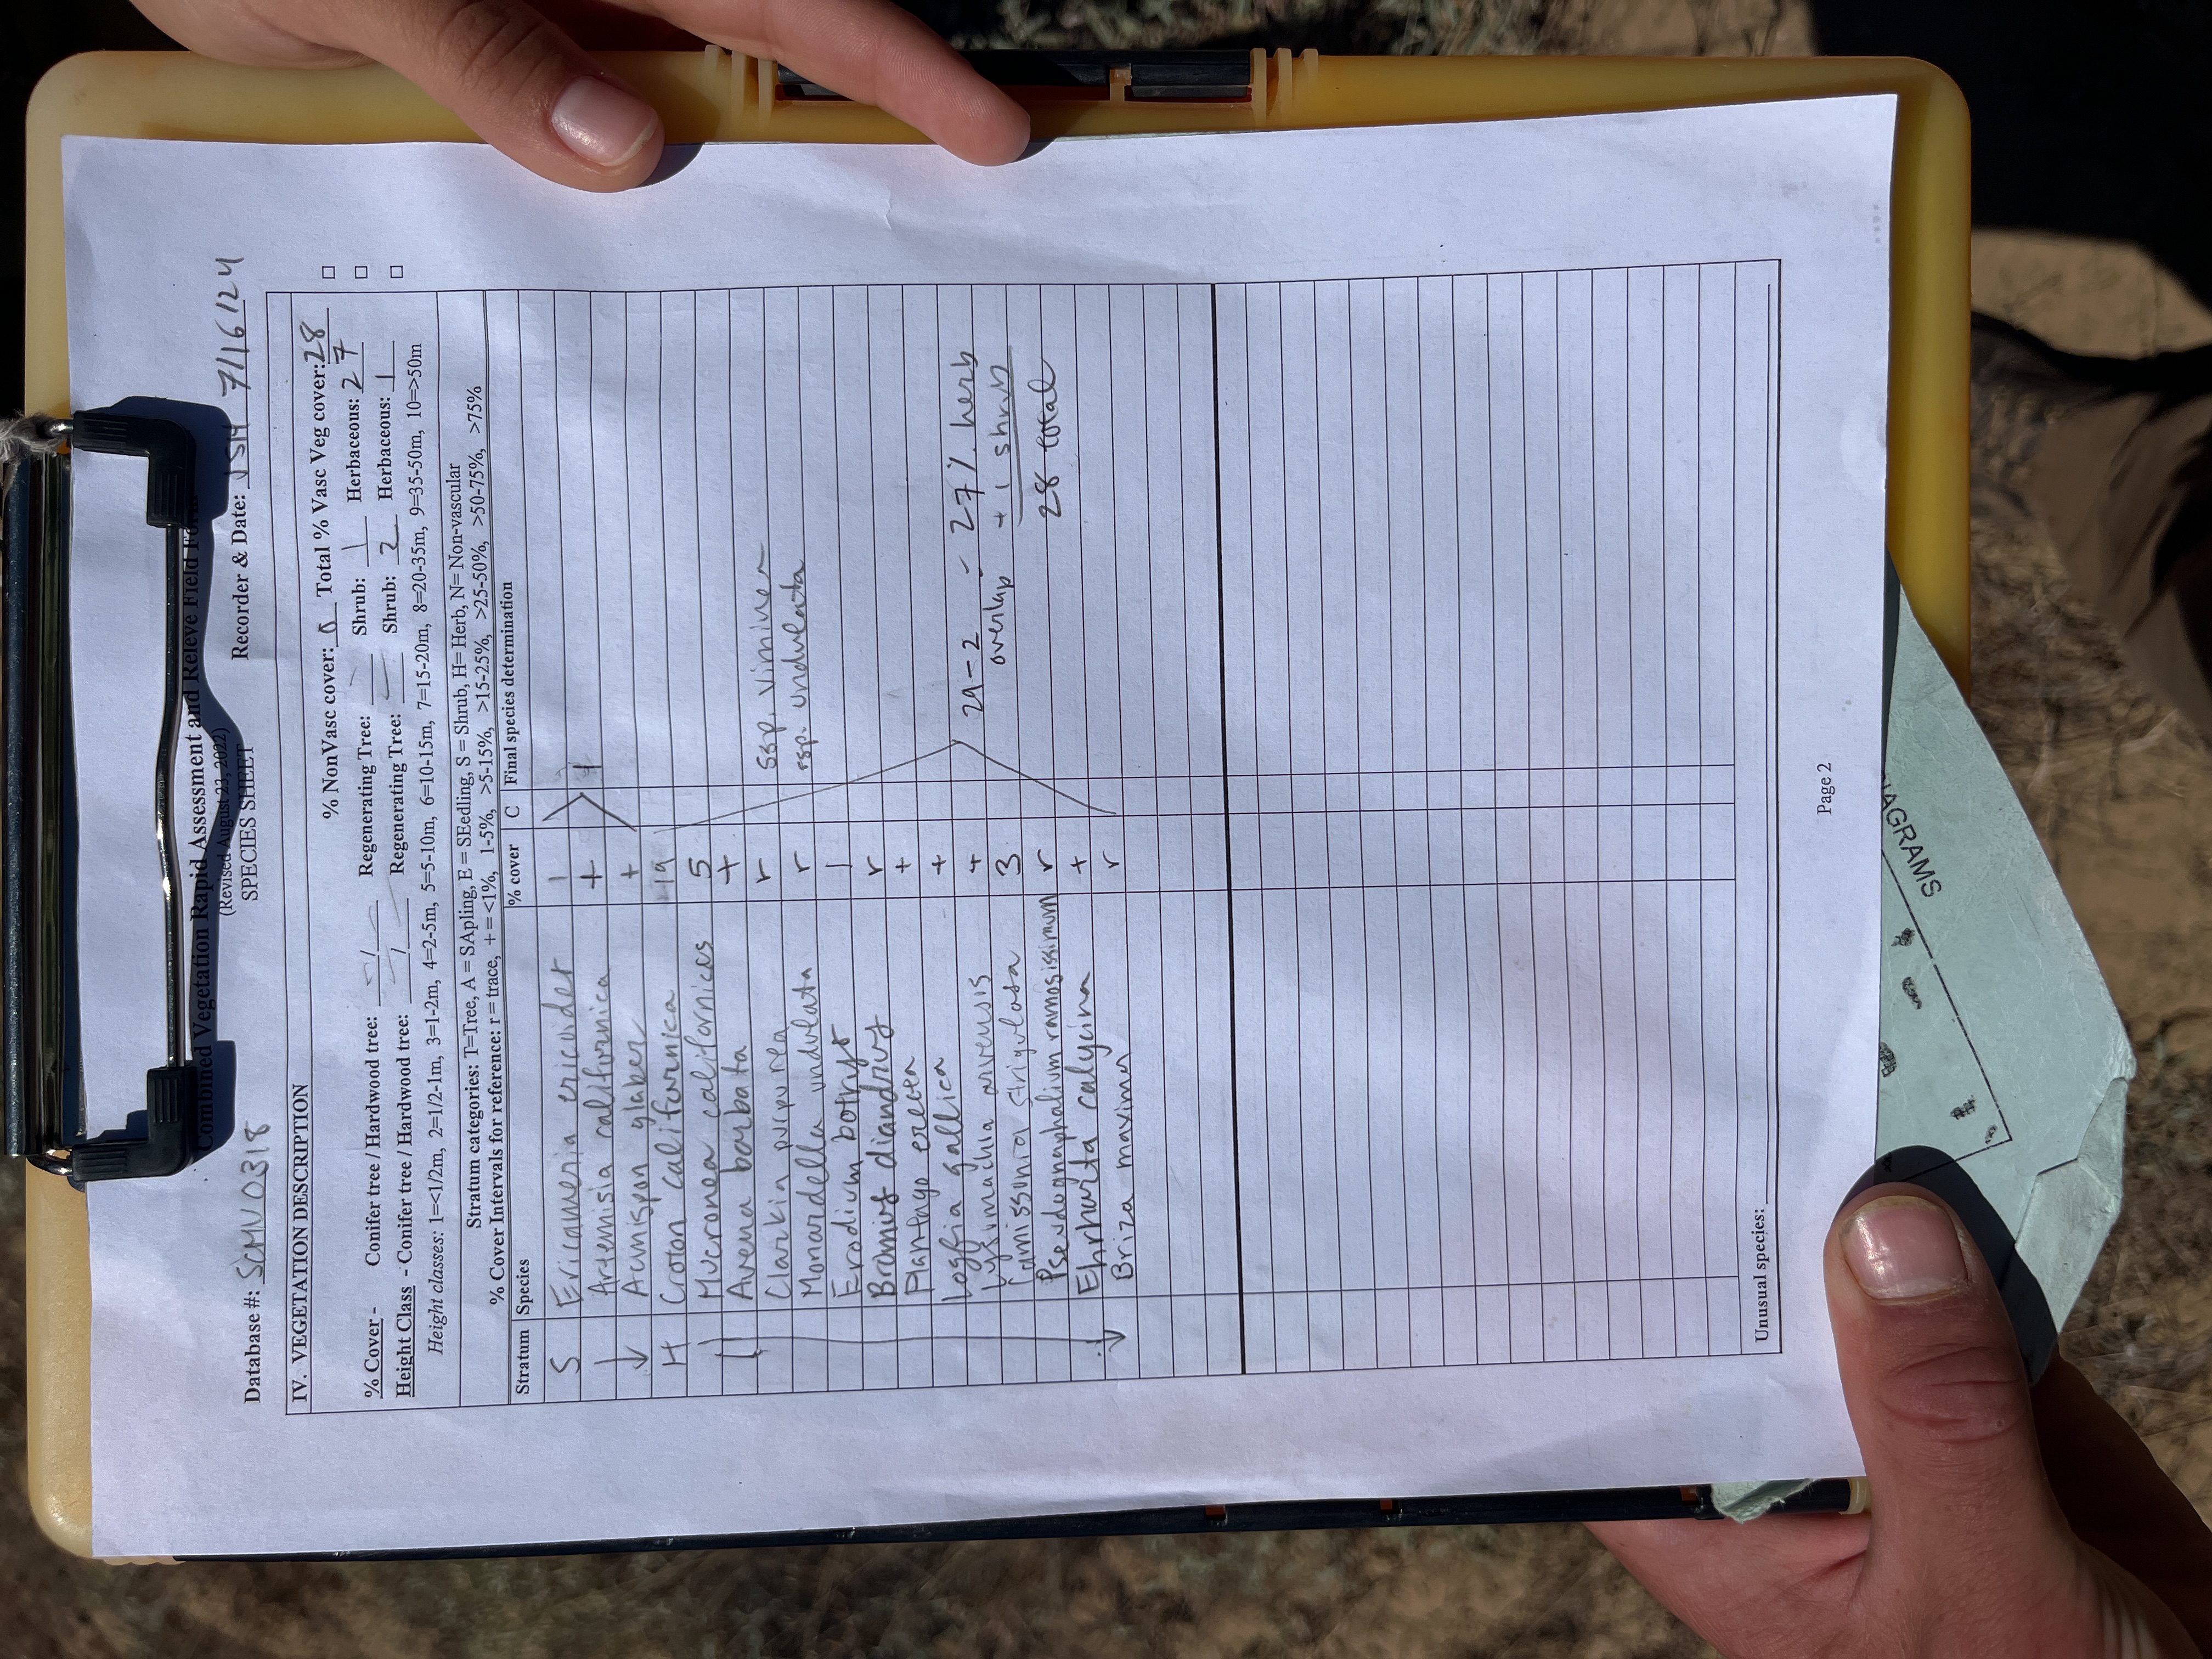 Combined Vegetation Rapid Assessment and Relevé Field Form
(Revised August 23, 2022)
SPECIES SHEET
Database #: SCMV0318 Recorder & Date: JSH 7/16/24
IV. VEGETATION DESCRIPTION
% NonVasc cover: 0 Total % Vasc Veg cover: 28
% Cover - Conifer tree / Hardwood tree: / Regenerating Tree: Shrub: 1 Herbaceous: 27
Height Class - Conifer tree / Hardwood tree: / Regenerating Tree: Shrub: 2 Herbaceous: 1
Height classes: 1=<1/2m, 2=1/2-1m, 3=1-2m, 4=2-5m, 5=5-10m, 6=10-15m, 7=15-20m, 8=20-35m, 9=35-50m, 10=>50m
Stratum categories: T=Tree, A = SApling, E = SEedling, S = Shrub, H= Herb, N= Non-vascular
% Cover Intervals for reference: r = trace, + = <1%, 1-5%, >5-15%, >15-25%, >25-50%, >50-75%, >75%
Stratum Species % cover C Final species determination
S Ericameria ericoides 1
Artemisia californica + 1
Acmispon glaber +
H Croton californica 19
Mucronea californices 5
Avena barbata +
Clarkia purpurea r ssp. viminea
Monardella undulata r ssp. undulata
Erodium botrys 1
Bromus diandrus r
Plantago erecta +
Logfia gallica +
Lysimachia arvensis + 29-2 = 27% herb
Camissonia strigulosa 3 overlap + 1 shrub
Pseudognaphalium ramosissimum r 28 total
Ehrharta calycina +
Briza maxima r
Unusual species:
Page 2
DIAGRAMS